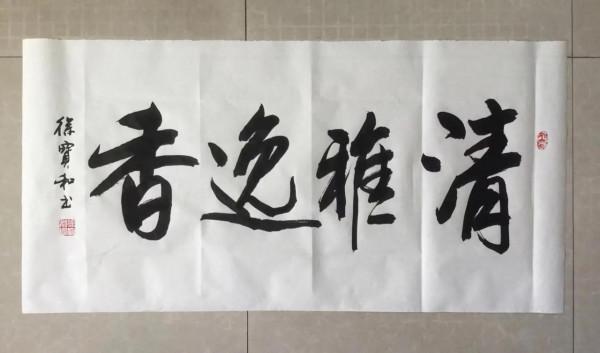 清雅逸香
徐寶和书